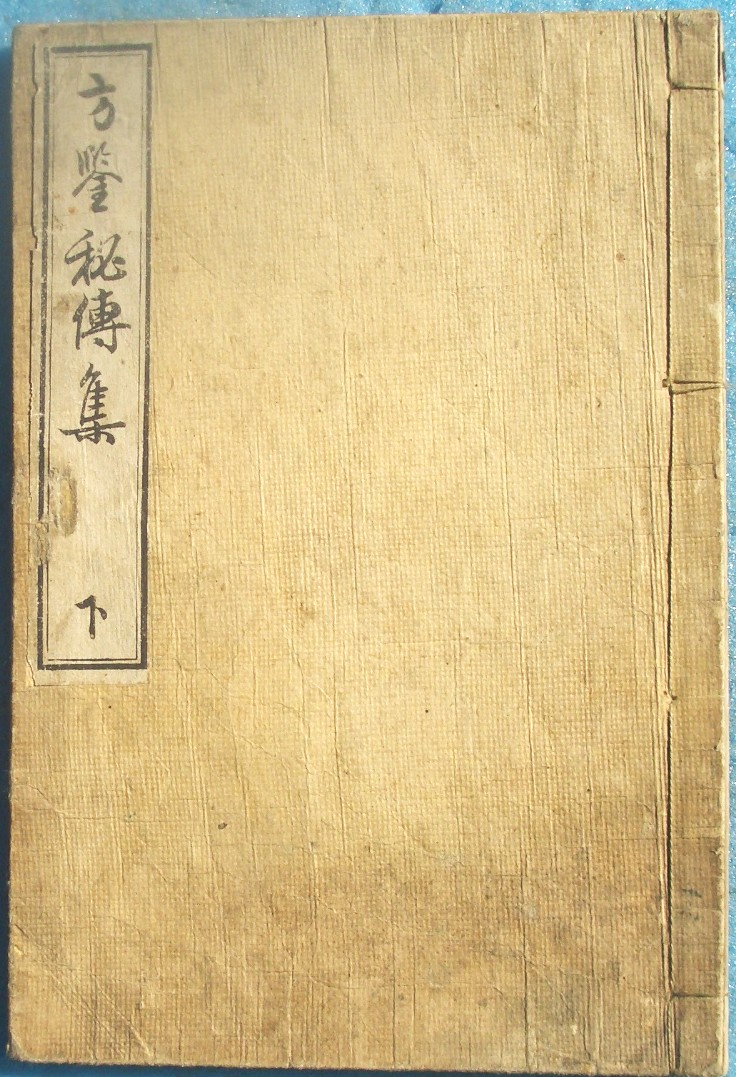 方鑒秘傳集 下